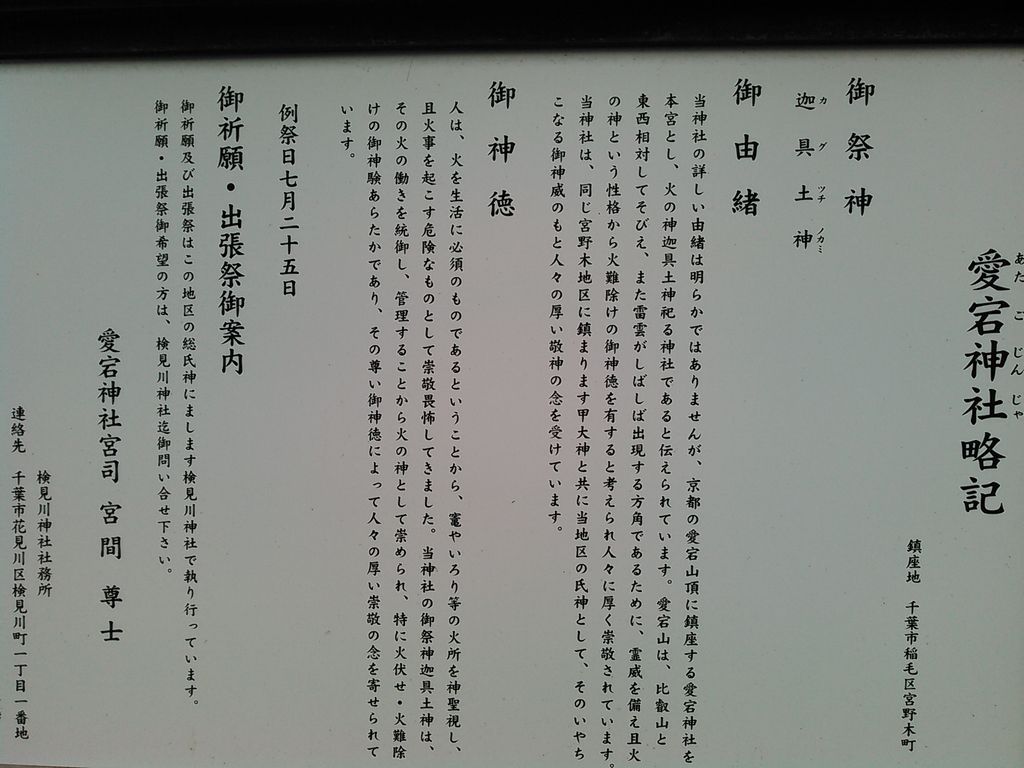 愛宕神社略記
あたごじんじゃ
鎮座地　千葉市稲毛区宮野木町
御祭神
迦具土神
カグツチノカミ
御由緒
当神社の詳しい由緒は明らかではありませんが、京都の愛宕山頂に鎮座する愛宕神社を
本宮とし、火の神迦具土神祀る神社であると伝えられています。愛宕山は、比叡山と
東西相対してそびえ、また雷雲がしばしば出現する方角であるために、霊威を備え且火
の神という性格から火難除けの御神徳を有すると考えられ人々に厚く崇敬されています。
当神社は、同じ宮野木地区に鎮まります甲大神と共に当地区の氏神として、そのいやち
こなる御神威のもと人々の厚い敬神の念を受けています。
御神徳
人は、火を生活に必須のものであるということから、竈やいろり等の火所を神聖視し、
且火事を起こす危険なものとして崇敬畏怖してきました。当神社の御祭神迦具土神は、
その火の働きを統御し、管理することから火の神として崇められ、特に火伏せ・火難除
けの御神験あらたかであり、その尊い御神徳によって人々の厚い崇敬の念を寄せられて
います。
例祭日七月二十五日
御祈願・出張祭御案内
御祈願及び出張祭はこの地区の総氏神にまします検見川神社で執り行っています。
御祈願・出張祭御希望の方は、検見川神社迄御問い合せ下さい。
愛宕神社宮司　宮間　尊士
検見川神社社務所
連絡先　千葉市花見川区検見川町一丁目一番地